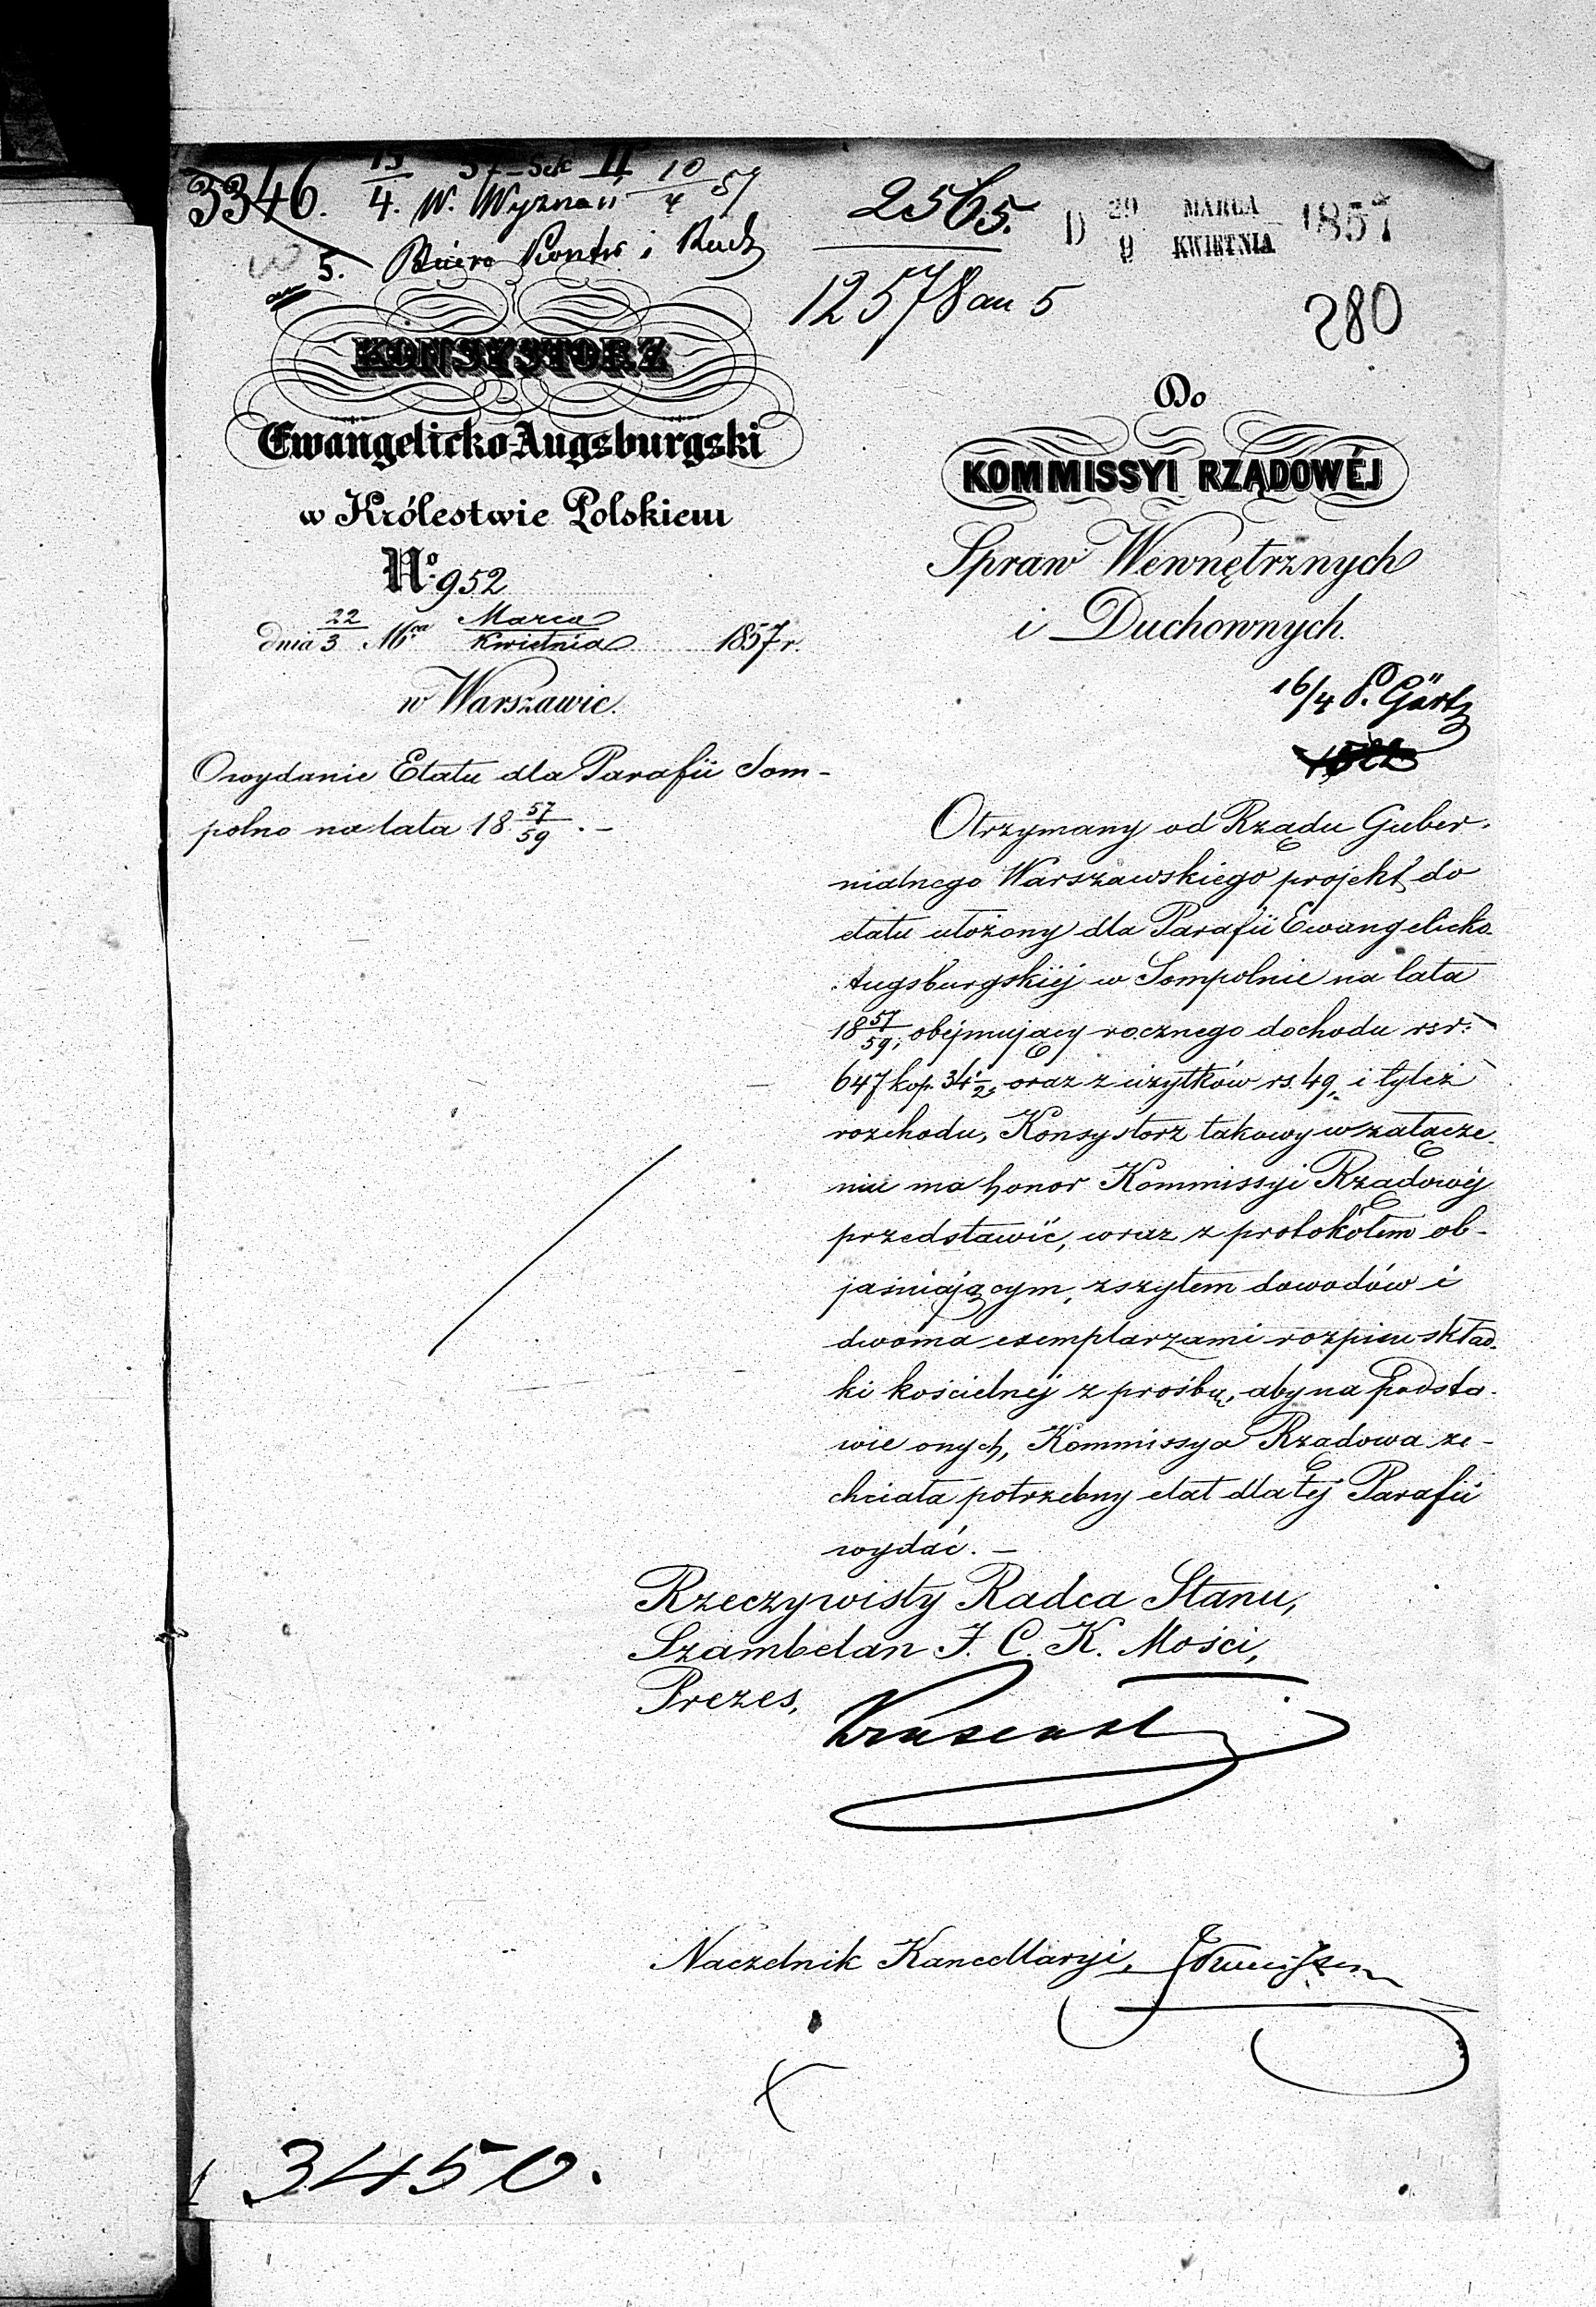 3346.
15/4. 57 Sek II 10/4 57
W. Wyznań
5. Biuro Kontr i Rach
2565.
D 29/9 MARCA/KWIETNIA 1857
12578 au 5
280
KONSYSTORZ
Ewangelicko Augsburgski
w Królestwie Polskiem
No. 952
dnia 22/3 Mca Marca/Kwietnia 1857 r.
w Warszawie.
O wydanie Etatu dla Parafii Som-
polno na lata 18 57/59. –
Do
KOMMISSYI RZĄDOWÉJ
Spraw Wewnętrznych
i Duchownych.
16/4 P. Görtz
Otrzymany od Rządu Guber-
nialnego Warszawskiego projekt do
etatu ułożony dla Parafii Ewangelicko-
Augsburgskiej w Sompolnie na lata
18 57/59, obejmujący rocznego dochodu rsr:
647 kop. 34 1/2, oraz z użytków rs. 49, i tyleż
rozchodu, Konsystorz takowy w załącze-
niu ma honor Kommissyi Rządowéj
przedstawić, wraz z protokółem ob-
jaśniającym, zszytem dowodów i
dwoma exemplarzami rozpisu skład-
ki kościelnéj z prośbą, aby na podsta-
wie onych, Kommissya Rządowa ze-
chciała potrzebny etat dla téj Parafii
wydać. –
Rzeczywisty Radca Stanu,
Szambelan J. C. K. Mości,
Prezes,
Naczelnik Kancellaryi,
3450.